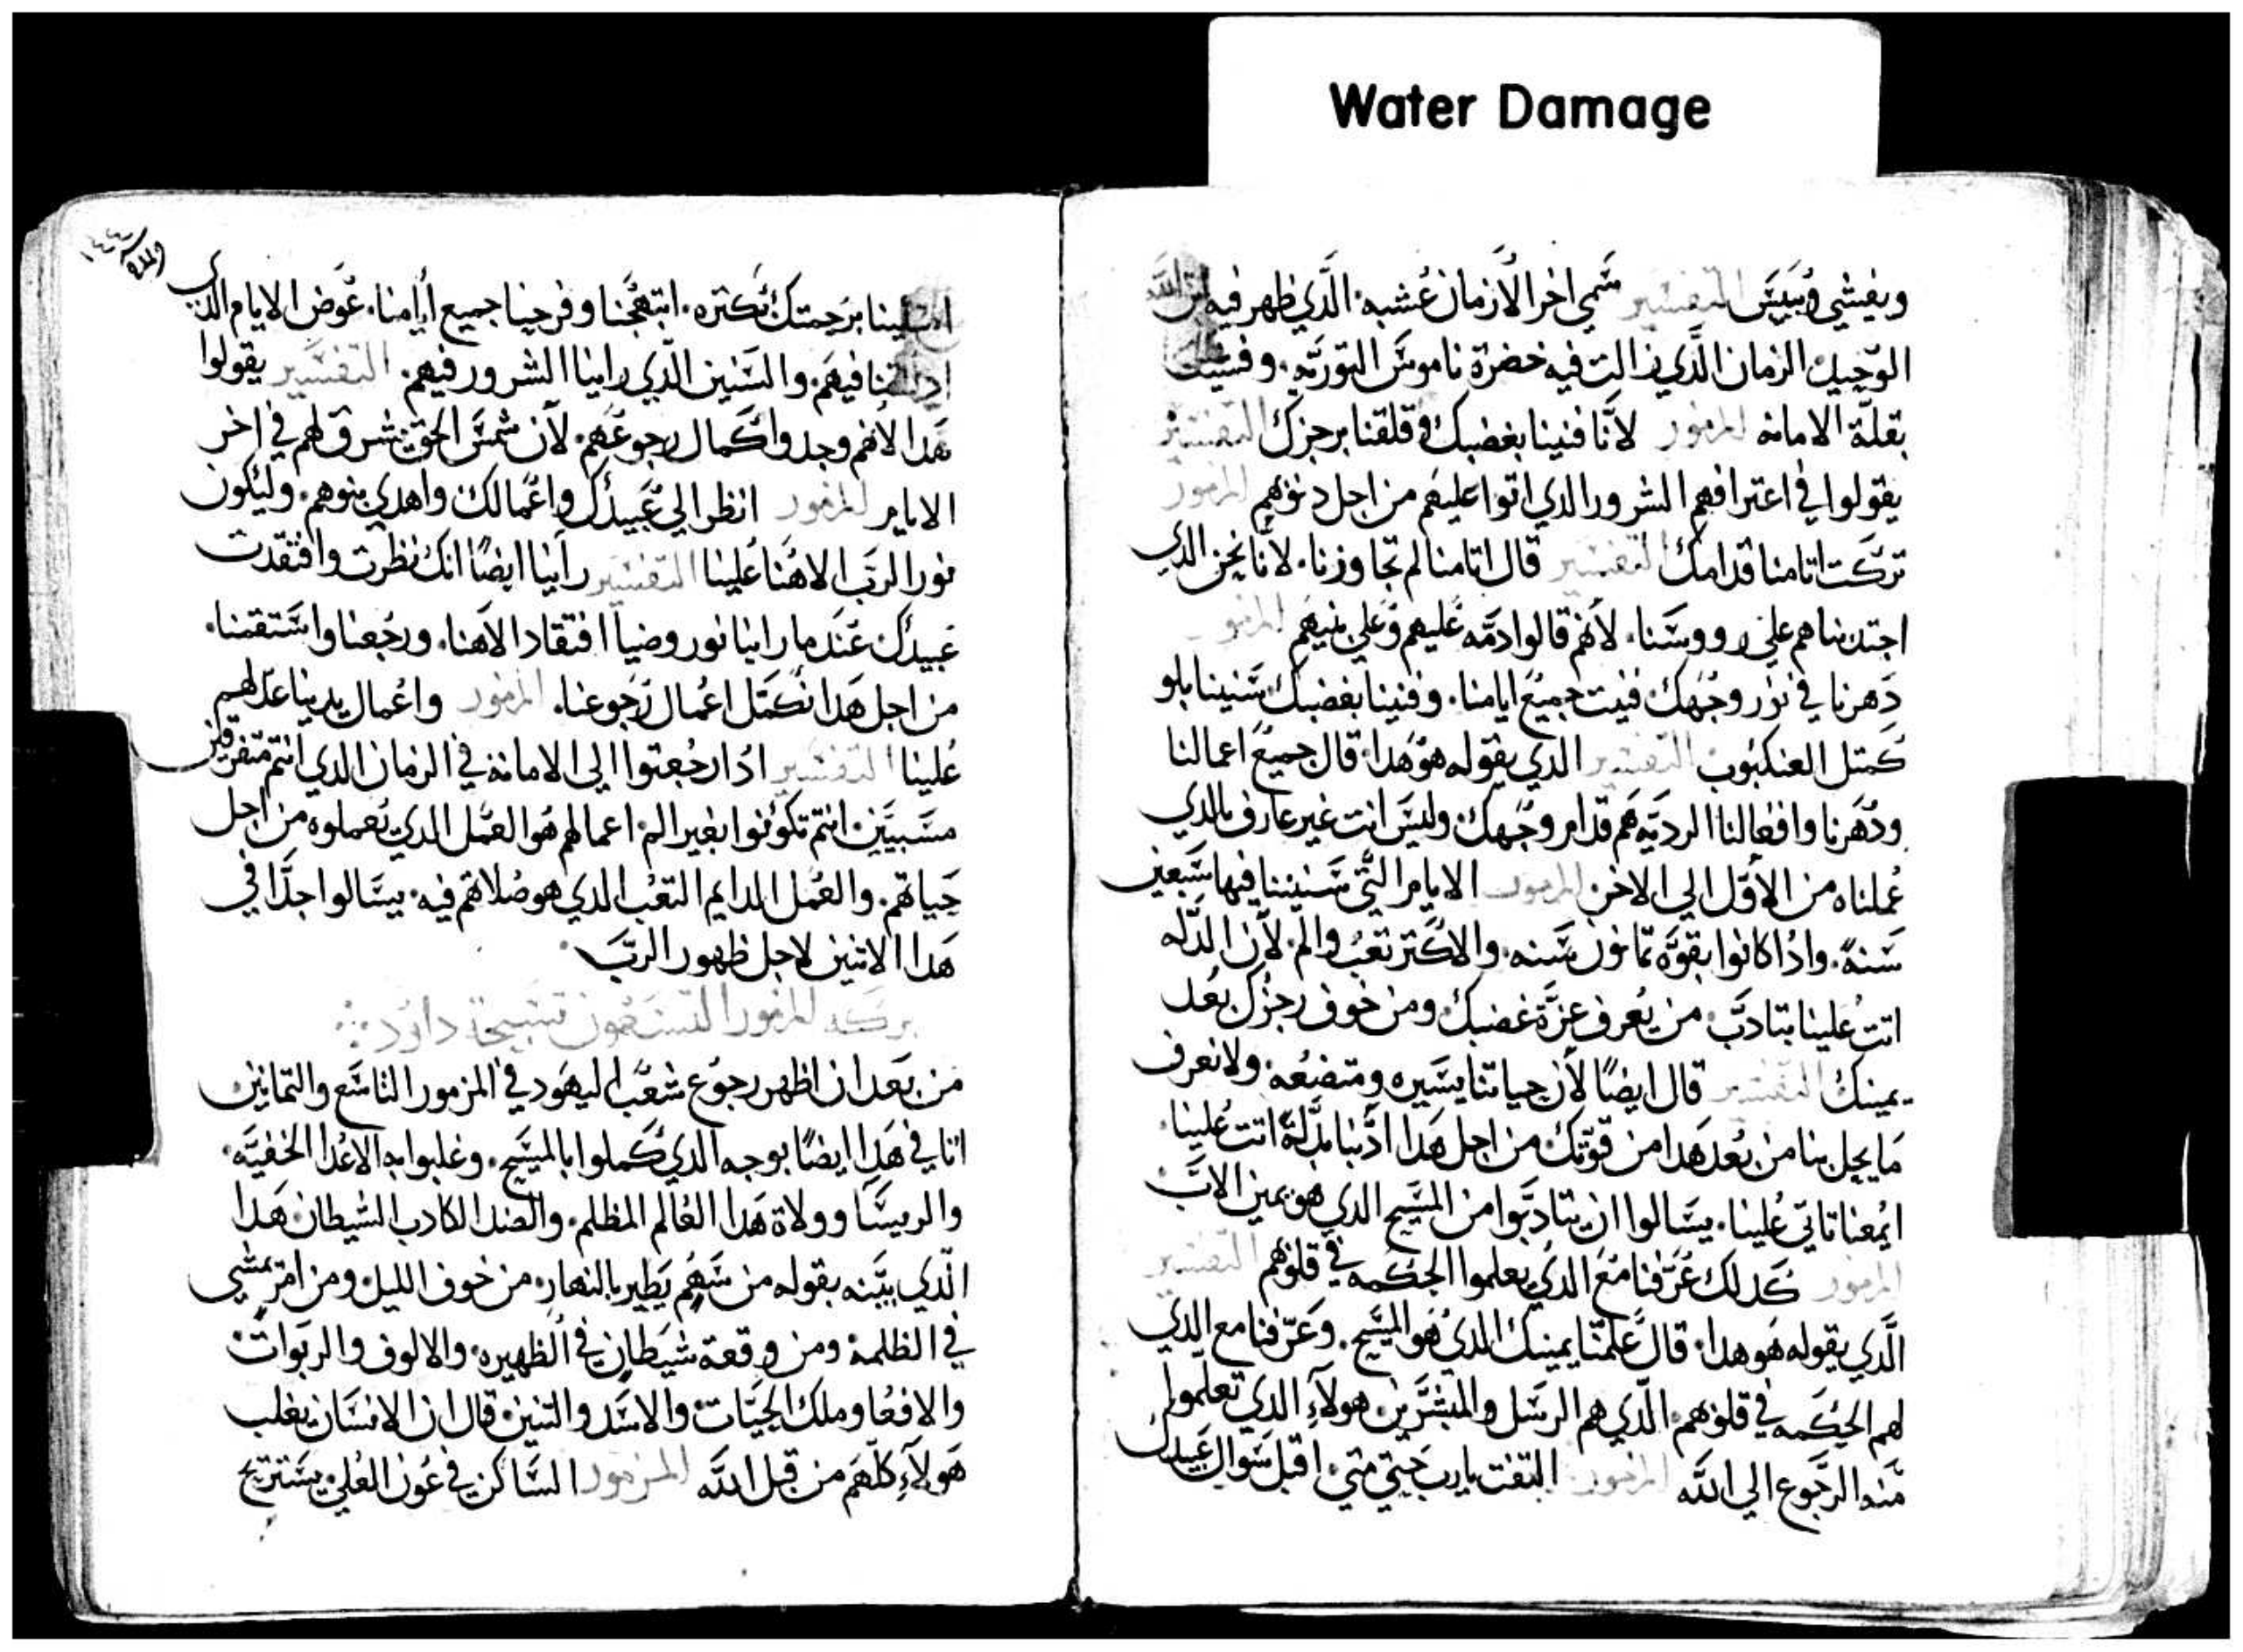 Water Damage
ويفشي ويبيس التفسير سمي اخر الازمان عشبه الذي ظهر فيه ابن الله
الوحيد الزمان الذي زالت فيه خضرة ناموس التوريه وفسيت
بقلة الامانه المزمور لانا فنينا بغضبك وقلقنا برجزك التفسير
يقولوا في اعترافهم الشرور الدي اتوا عليهم من اجل دنوبهم المزمور
تركت اتامنا قدامك التفسير قال اتامنا لم تجاوزنا لانا نحن الدي
اجتدبناهم علي رووسنا لانهم قالوا دمه عليهم وعلي بنيهم المزمور
دهرنا في نور وجهك فنيت جميع ايامنا وفنينا بغضبك سنينا بلو
كمتل العنكبوب التفسير الدي يقوله هو هدا قال جميع اعمالنا
ودهرنا وافعالنا الرديه هم قدام وجهك وليس انت غير عارف بالدي
عملناه من الاول الي الاخر المزمور الايام التي سنيننا فيها سبعين
سنة وادا كانوا بقوه تمانون سنه والاكتر تعب والم لان المدله
اتت علينا بتادب من يعرف عزة غضبك ومن خوف رجزك بعد
يمينك التفسير قال ايضا لان حياتنا يسيره ومتضعه ولا نعرف
ما يحل بنا من بعد هدا من قوتك من اجل هدا ادبنا بمدلة اتت علينا
ايمعنا تاتي علينا يسالوا ان يتادبوا من المسيح الدي هو يمين الاب
المزمور كدلك عرفنا مع الدي يعلموا الحكمه في قلوبهم التفسير
الذي يقوله هو هدا قال علمنا يمينك الدي هو المسيح وعرفنا مع الدي
لهم الحكمه في قلوبهم الذي هم الرسل والمبشرين هولاء الدي تعلموا
منه الرجوع الي الله المزمور التفت يارب حيتي متي اقبل سوال عبيدك
امتلينا برحمتك بكتره ابتهجنا وفرحينا جميع أيامنا عوض الايام الدي
ادللتنا فيهم والسنين الدي راينا الشرور فيهم التفسير يقولوا
هدا لانهم وجدوا كمال رجوعهم لان شمس الحق شرق لهم في اخر
الايام المزمور انظر الي عبيدك واعمالك واهدي بنوهم وليكون
نور الرب الاهنا علينا التفسير رانيا ايضا انك نظرت وافتقدت
عبيدك عند ما راينا نور وضيا افتقاد الاهنا ورجعنا واستقمنا
من اجل هدا نكمل اعمال رجوعنا المزمور واعمال يدينا عدلهم
علينا التفسير ادا رجعتوا الي الامانه في الزمان الدي انتم متفرقين
مسبيين انتم تكونوا بغير الم اعمالهم هو العمل الدي تعملوه من اجل
حياتهم والعمل الدايم التعب الدي هو صلاتهم فيه يسالوا جدا في
هدا الاتنين لاجل ظهور الرب
بركه المزمور التسعون تسبحة داود
من بعد ان اظهر رجوع شعب اليهود في المزمور التاسع والتمانين
اتا في هدا ايضا بوجه الدي كملوا بالمسيح وغلبوا به الاعدا الخفيه
والريسا وولاة هدا العالم المظلم والضد الكادب الشيطان هدا
الذي بينه بقوله من سهم يطير بالنهار من خوف الليل ومن امر يمشي
في الظلمه ومن وقعة شيطان في الظهيره والالوف والربوات
والافعا وملك الحيات والاسد والتنين قال ان الانسان يغلب
هولاء كلهم من قبل الله المزمور الساكن في عون العلي يستريح